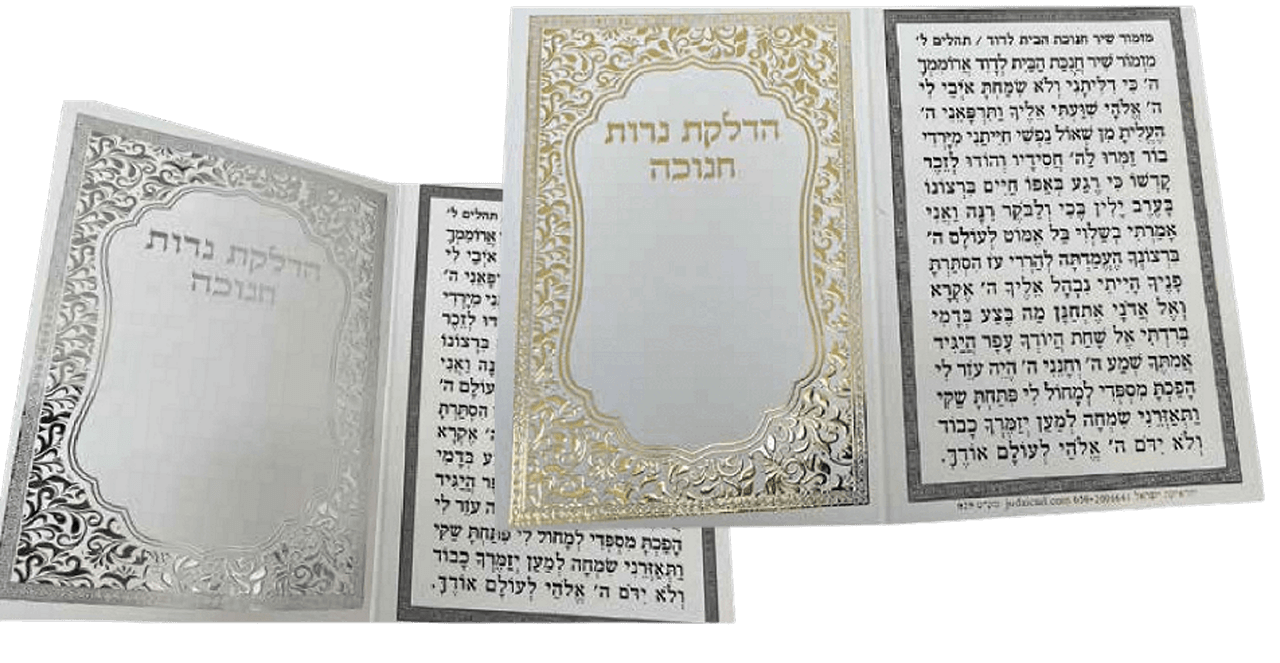 הדלקת נרות
חנוכה
מזמור שיר חנוכת הבית לדוד / תהלים ל'
מִזְמוֹר שִׁיר חֲנֻכַּת הַבַּיִת לְדָוִד אֲרוֹמִמְךָ
ה' כִּי דִלִּיתָנִי וְלֹא שִׂמַּחְתָּ אֹיְבַי לִי
ה' אֱלֹהָי שִׁוַּעְתִּי אֵלֶיךָ וַתִּרְפָּאֵנִי ה'
הֶעֱלִיתָ מִן שְׁאוֹל נַפְשִׁי חִיִּיתַנִי מִיָּרְדִי
בוֹר זַמְּרוּ לַה' חֲסִידָיו וְהוֹדוּ לְזֵכֶר
קָדְשׁוֹ כִּי רֶגַע בְּאַפּוֹ חַיִּים בִּרְצוֹנוֹ
בָּעֶרֶב יָלִין בֶּכִי וְלַבֹּקֶר רִנָּה וַאֲנִי
אָמַרְתִּי בְשַׁלְוִי בַּל אֶמּוֹט לְעוֹלָם ה'
בִּרְצוֹנְךָ הֶעֱמַדְתָּה לְהַרְרִי עֹז הִסְתַּרְתָּ
פָנֶיךָ הָיִיתִי נִבְהָל אֵלֶיךָ ה' אֶקְרָא
וְאֶל אֲדֹנָי אֶתְחַנָּן מַה בֶּצַע בְּדָמִי
בְּרִדְתִּי אֶל שָׁחַת הֲיוֹדְךָ עָפָר הֲיַגִּיד
אֲמִתֶּךָ שְׁמַע ה' וְחָנֵּנִי ה' הֱיֵה עֹזֵר לִי
הָפַכְתָּ מִסְפְּדִי לְמָחוֹל לִי פִּתַּחְתָּ שַׂקִּי
וַתְּאַזְּרֵנִי שִׂמְחָה לְמַעַן יְזַמֶּרְךָ כָבוֹד
וְלֹא יִדֹּם ה' אֱלֹהַי לְעוֹלָם אוֹדֶךָּ.
יודאיקה ישראל judaicail.com 058-2001641
הדלקת נרות
חנוכה
תהלים ל'
אֲרוֹמִמְךָ
אֹיְבַי לִי
ה'
מִיָּרְדִי
לְזֵכֶר
בִּרְצוֹנוֹ
וַאֲנִי
עוֹלָם ה'
הִסְתַּרְתָּ
אֶקְרָא
בְּדָמִי
הֲיַגִּיד
עֹזֵר לִי
הָפַכְתָּ מִסְפְּדִי לְמָחוֹל לִי פִּתַּחְתָּ שַׂקִּי
וַתְּאַזְּרֵנִי שִׂמְחָה לְמַעַן יְזַמֶּרְךָ כָבוֹד
וְלֹא יִדֹּם ה' אֱלֹהַי לְעוֹלָם אוֹדֶךָּ.